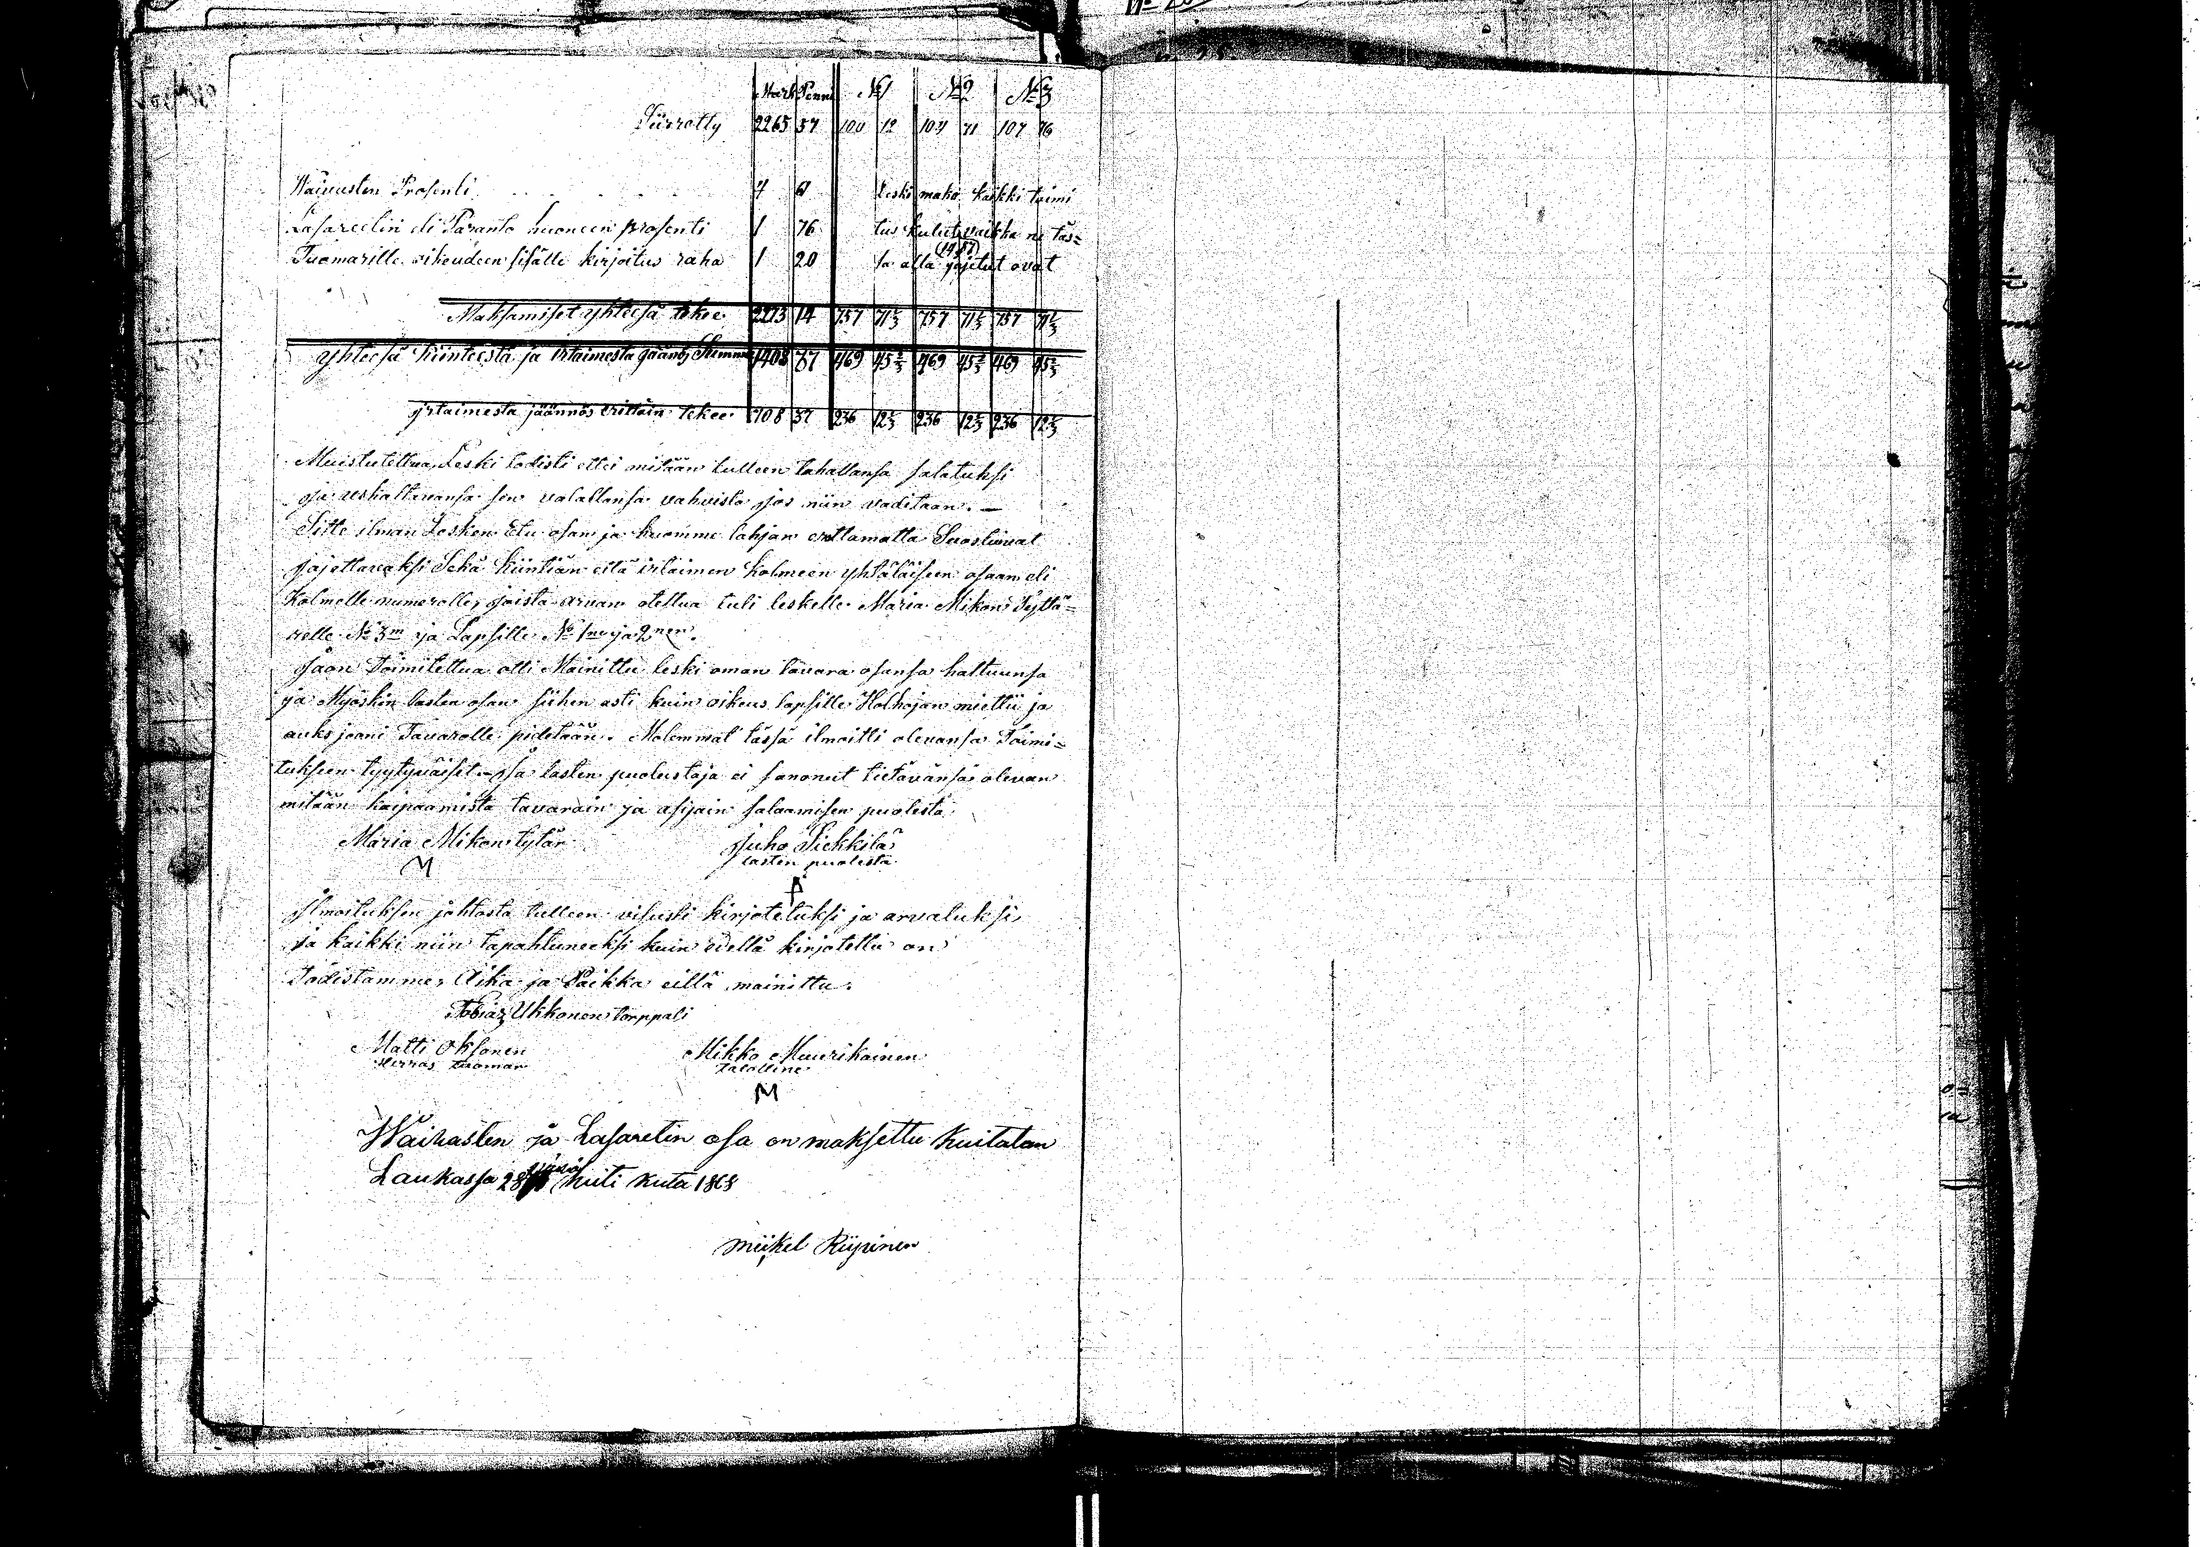 Mark Penni No 1 No 2 No 3
Siirretty 2265 37 100 12 104 71 107 76
Waivasten Prosenti 7 61 Leski maksa kaikki toimi
Lasareetin eli Paranto huoneen prosenti 1 76 tus kulut vaikka ne täs=
Tuomarille oikeudeen sisälle kirjoitus raha 1 20 sä alla jajetut ovat
Maksamiset yhteesä tekee 2273 14 757 71 1/3 757 71 1/3 757 71 1/3
Yhteesä kiinteestä ja irtaimesta jääntö Summa 1408 37 469 45 2/3 469 45 2/3 469 45 2/3
irtaimesta jäännös erittäin tekee 708 37 236 12 1/3 236 12 1/3 236 12 1/3
Muistutettua, Leski todisti ettei mitään tulleen tahallansa salatuksi
ja uskaltavansa sen valallansa vahvista jos niin vaditaan. —
Sitte ilman Lesken Etu osan ja huomme lahjan erottamatta Suostuivat
jajettavaksi Sekä kiintiän että irtaimen kolmeen yhtäläiseen osaan eli
Kolmelle numerolle, joista arvan otettua tuli leskelle Maria Mikon Tyttä=
relle No 3m ja Lapsille No 1ne ja 2nen.
Jaon Toimitettua otti Mainittu leski oman tavara osansa haltuunsa
ja Myöskin lasten osan siihen asti kuin oikeus lapsille Holhojan miettii ja
auksjooni Tavarolle pidetään. Molemmat tässä ilmoitti olevansa Toimi=
tukseen tyytyväiset ja lasten puolustaja ei sanonut tietävänsä olevan
mitään kaipaamista tavarain ja asijain salaamisen puolesta
Maria Mikontytär Juho Siekkilä
M lasten puolesta
Ilmoituksen johtosta tulleen visusti kirjotetuksi ja arvatuksi,
ja kaikki niin tapahtuneeksi kuin edellä kirjotettu on
Todistamme, Aika ja Paikka eillä mainittu.
Tobias Ukkonen torppali
Matti Oksanen Mikko Muurikainen
Herras tuomari Talolline
M
Waivasten ja Lasaretin osa on maksettu Kuitatan
Laukassa 28 huti kuta 1868
Miikel Riipinen